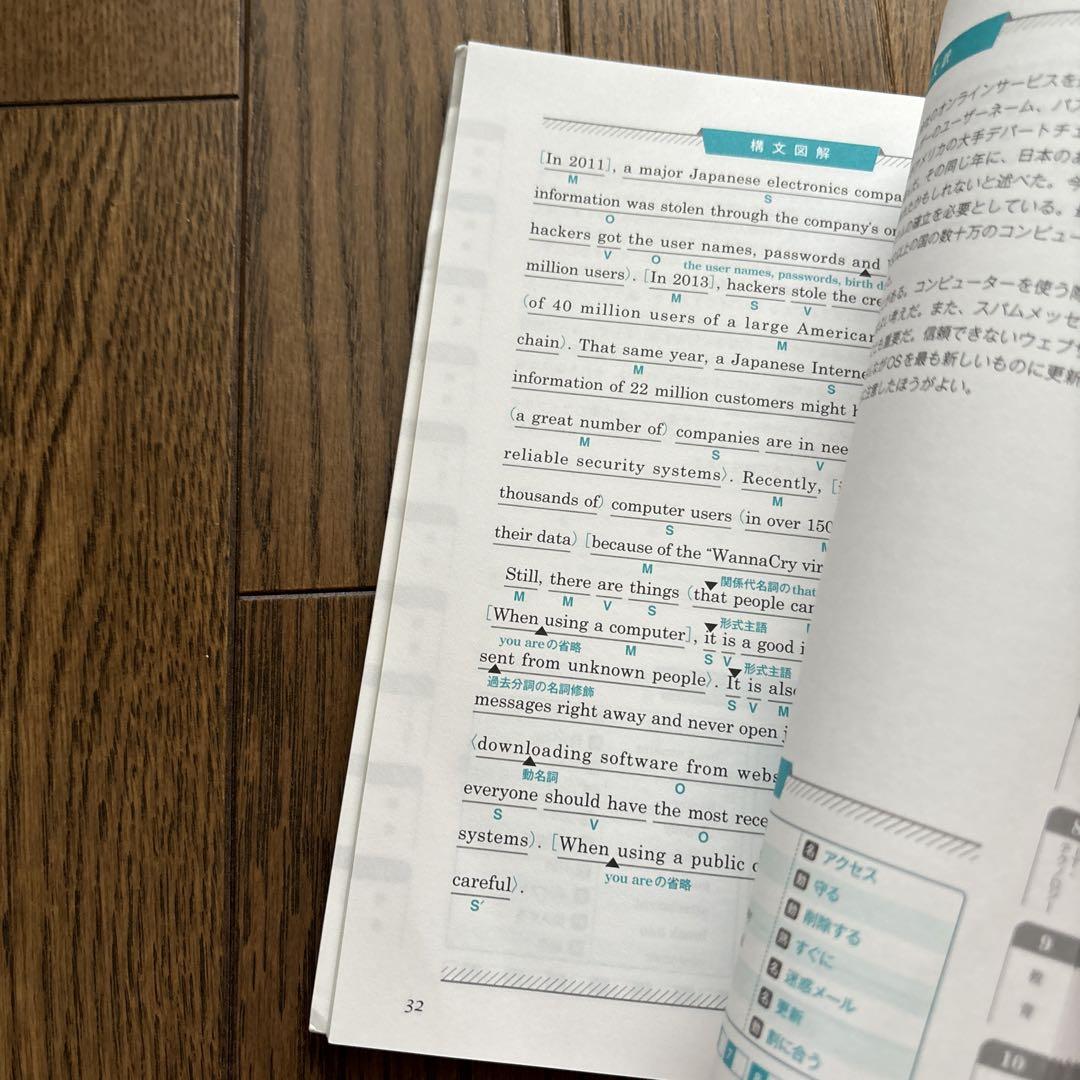 構文図解
[In 2011], a major Japanese electronics
M S
information was stolen through the company's
O
hackers got the user names, passwords and
V O the user names, passwords, birth
million users). [In 2013], hackers stole the
M S V
(of 40 million users of a large American
M
chain). That same year, a Japanese
M S
information of 22 million customers might
(a great number of) companies are in
M S V
reliable security systems〉. Recently,
M
thousands of) computer users (in over 150
S
their data) [because of the “WannaCry
M
Still, there are things (that people
関係代名詞のthat
M M V S
[When using a computer], it is a good
形式主語
you areの省略 M S V
sent from unknown people〉. It is
形式主語
過去分詞の名詞修飾 S V M
messages right away and never open
〈downloading software from
動名詞 O
everyone should have the most
S V O
systems). [When using a public
you areの省略
careful〉.
S′
32
オンラインサービスを
のユーザーネーム、
の大手デパート
その同じ年に、日本の
かもしれないと述べた。
の確立を必要としている。
以上の国の数十万のコンピュー
がある。コンピューターを使う
また、スパムメッセ
重要だ。信頼できないウェブ
OSを最も新しいものに更新
注意したほうがよい。
名 アクセス
動 守る
動 削除する
すぐに
名 迷惑メール
名 更新
動 割に合う
7
8
9
教育
10